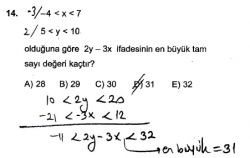 14. -3/ -4 < x < 7
2/ 5 < y < 10
olduğuna göre 2y – 3x ifadesinin en büyük tam
sayı değeri kaçtır?
A) 28 B) 29 C) 30 D) 31 E) 32
10 < 2y < 20
-21 < -3x < 12
-11 < 2y - 3x < 32
→ en büyük = 31